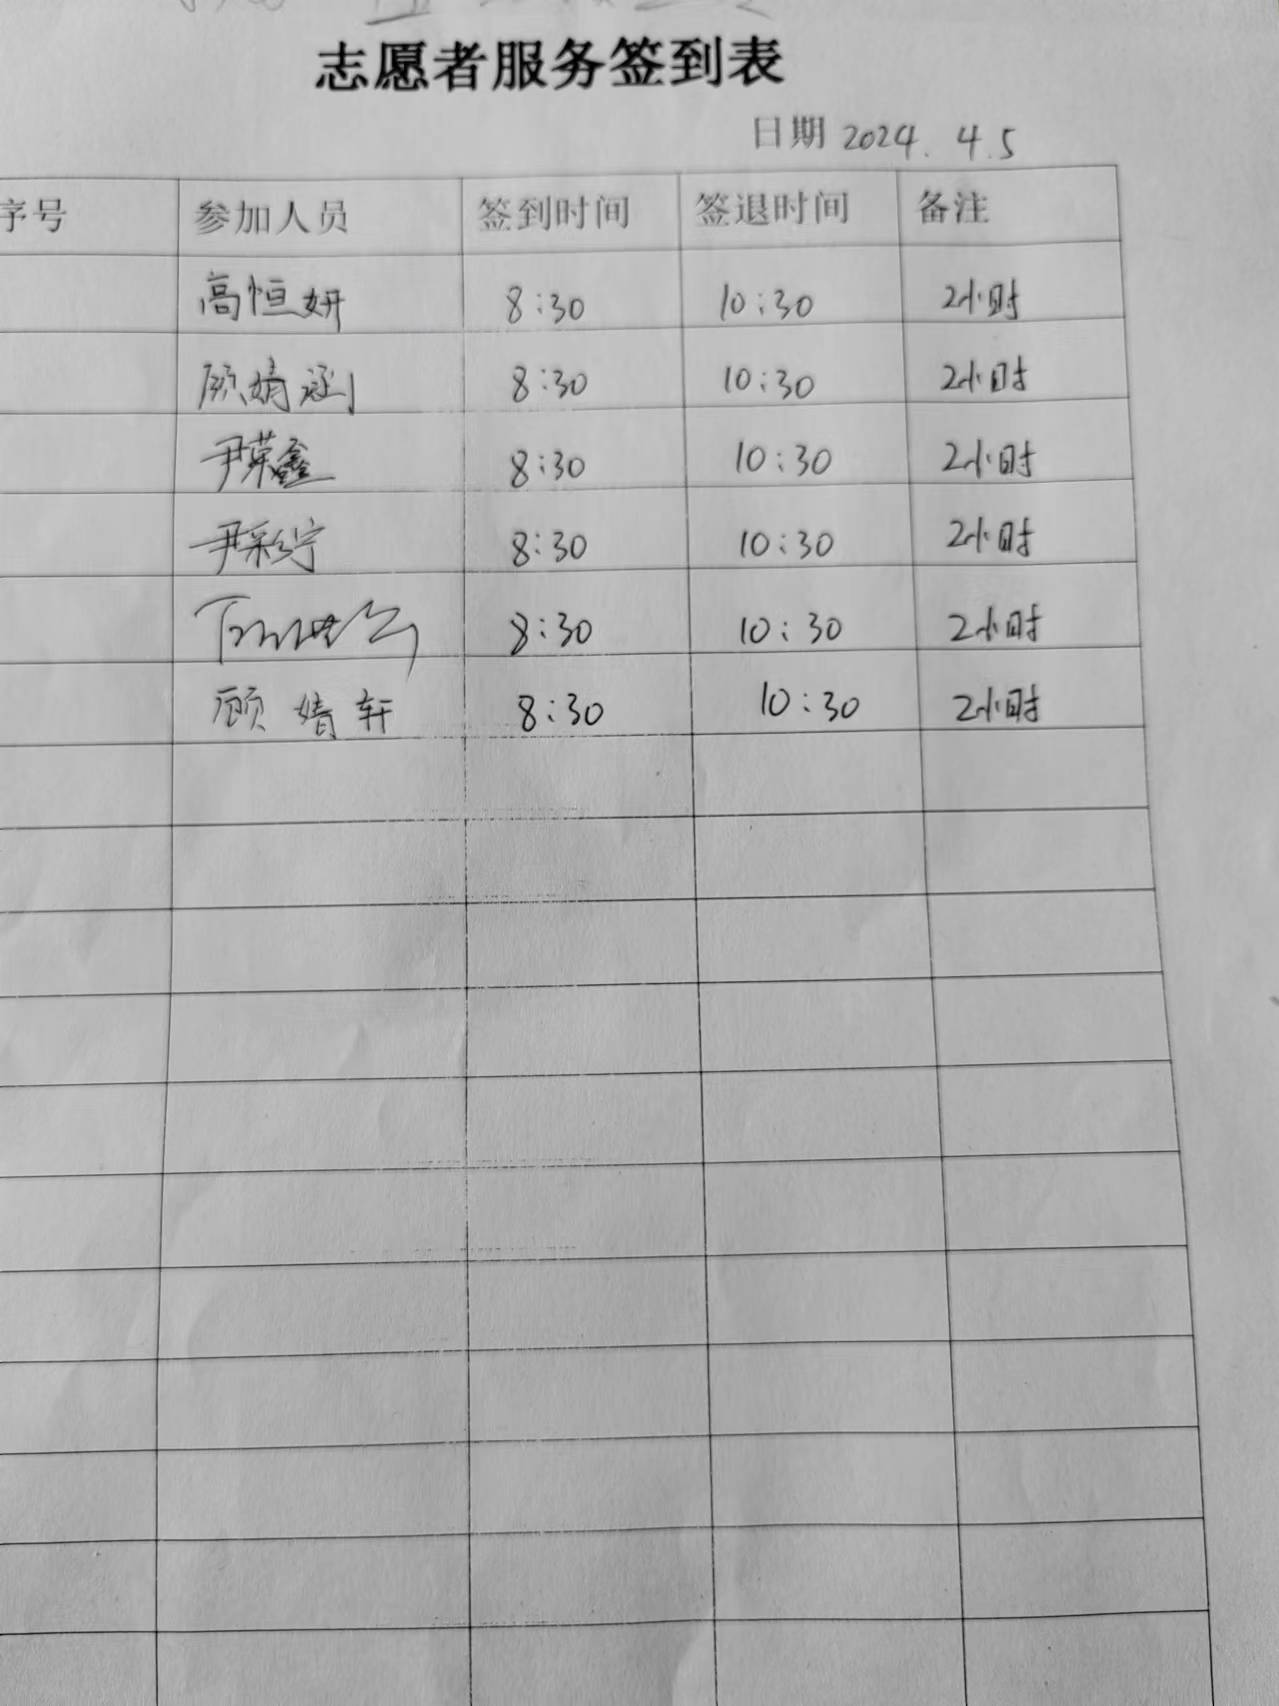 志愿者服务签到表
日期 2024.4.5
序号 参加人员 签到时间 签退时间 备注
高恒妍 8:30 10:30 2小时
顾婧涵 8:30 10:30 2小时
尹荣鑫 8:30 10:30 2小时
尹彩宁 8:30 10:30 2小时
8:30 10:30 2小时
顾婧轩 8:30 10:30 2小时